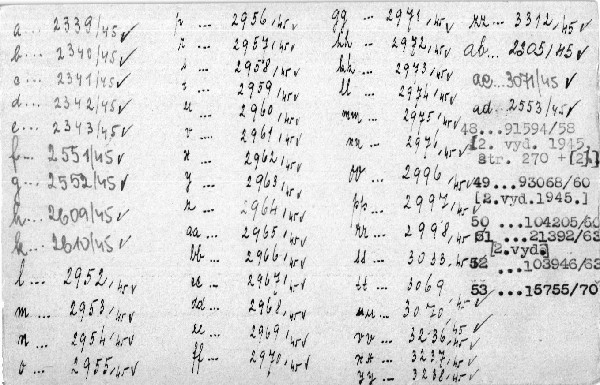 a... 2339/45 ✓
b... 2340/45 ✓
c... 2341/45 ✓
d... 2342/45 ✓
e... 2343/45 ✓
f... 2551/45 ✓
g... 2552/45 ✓
h... 2609/45 ✓
k... 2610/45 ✓
l ... 2952/45 ✓
m ... 2953/45 ✓
n ... 2954/45 ✓
o ... 2955/45 ✓
p ... 2956/45 ✓
r ... 2957/45 ✓
s ... 2958/45 ✓
t ... 2959/45 ✓
u ... 2960/45 ✓
v ... 2961/45 ✓
x ... 2962/45 ✓
y ... 2963/45 ✓
z ... 2964/45 ✓
aa ... 2965/45 ✓
bb ... 2966/45 ✓
cc ... 2967/45 ✓
dd ... 2968/45 ✓
ee ... 2969/45 ✓
ff ... 2970/45 ✓
gg ... 2971/45 ✓
hh ... 2972/45 ✓
kk ... 2973/45 ✓
ll ... 2974/45 ✓
mm ... 2975/45 ✓
nn ... 2976/45 ✓
oo ... 2996/45 ✓
pp ... 2997/45 ✓
rr ... 2998/45 ✓
ss ... 3033/45 ✓
tt ... 3069
uu ... 3070/45 ✓
vv ... 3236/45 ✓
xx ... 3237/45 ✓
yy ... 3238/45 ✓
zz ... 3312/45 ✓
ab... 2305/45 ✓
ac...3071/45 ✓
ad..2553/45 ✓
48...91594/58
[2. vyd. 1945,
str. 270 + [2].]
49...93068/60
[2.vyd.1945.]
50 ...104205/60
51 ...21392/63
[2.vyd.]
52 ...103946/63
53 ...15755/70